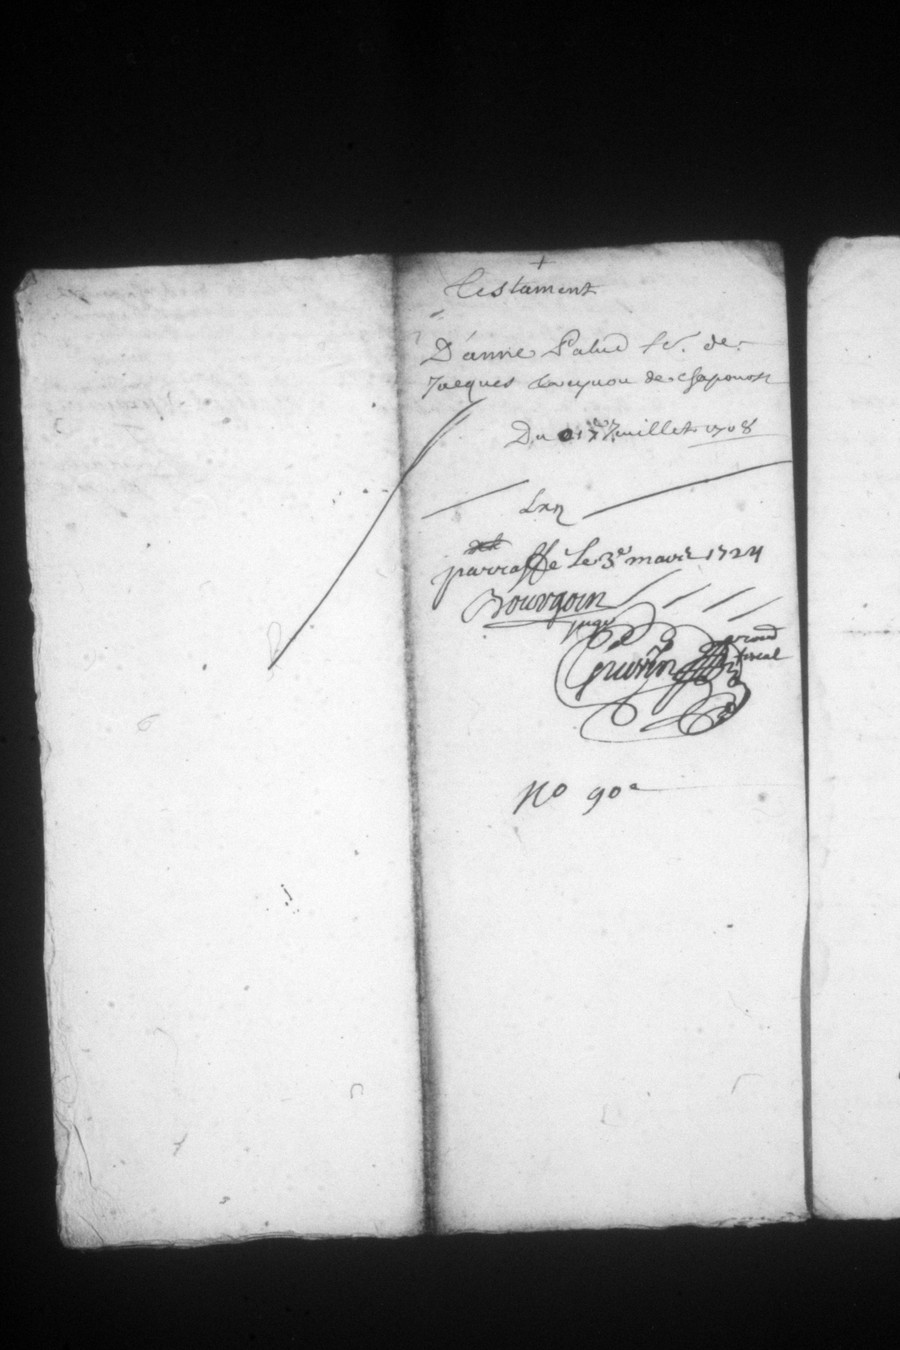 Testament
D'anne Palud fe. de
Jacques de chaponost
Du 17e Juillet 1708
parraffé Le 3e mars 1724
Bourgoin
juge
Guerin procu
fiscal
No 90e